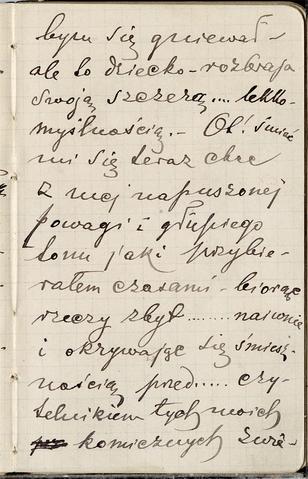 bym się gniewał -
ale to dziecko - rozbraja
swoją szczerą .... lekko-
myślnością. - Ot! śmiać
mi się teraz chce
z mej napuszonej
powagi i głupiego
tonu jaki przybie-
rałem czasami - biorąc
rzeczy zbyt ........ naiwnie
i okrywając się śmiesz-
nością przed ..... czy-
telnikiem tych moich
komicznych zwie-